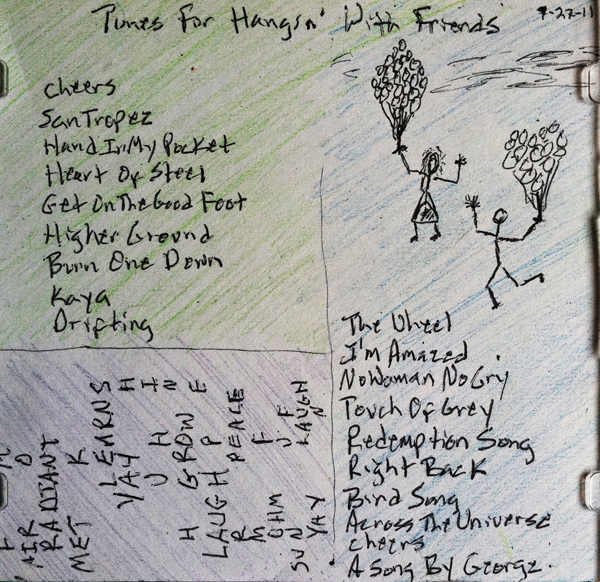 Tunes For Hangin' With Friends
9-27-11
Cheers
San Tropez
Hand In My Pocket
Heart Of Steel
Get On The Good Foot
Higher Ground
Burn One Down
Kaya
Drifting
The Wheel
I'm Amazed
No Woman No Cry
Touch Of Grey
Redemption Song
Right Back
Bird Song
Across The Universe
Cheers
A Song By George.
AIR
RADIANT
MET
LEARNS
YAY
GROW
LAUGH
PEACE
OHM
SUN
LAUGH
YAY